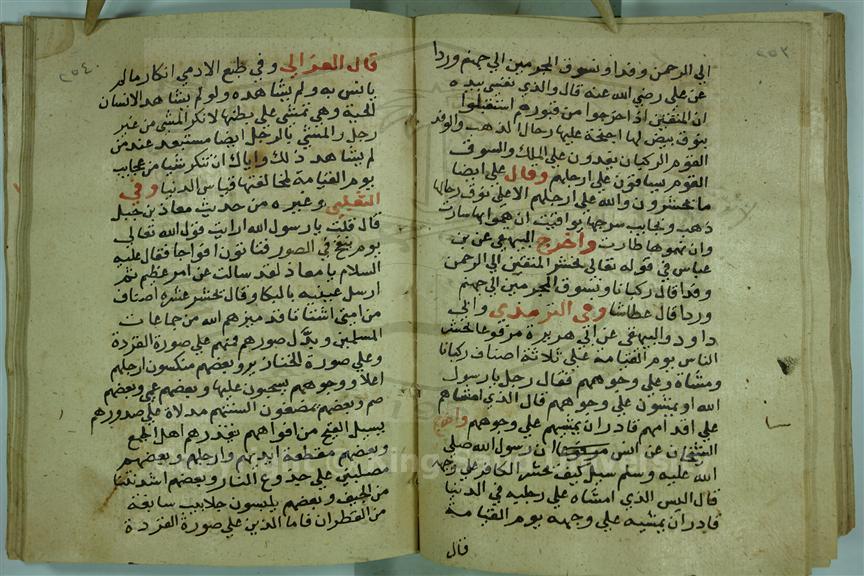 ٢٥٣
الي الرحمن وفدا ونسوق المجرمين الي جهنم وردا
عن علي رضي الله عنه قال والذي نفسي بيده
ان المتقين اذا خرجوا من قبورهم استقبلوا
بنوق بيض لها اجنحة عليها رحال الذهب والوفد
القوم الركبان يفدون علي الملك والسوق
القوم يساقون علي ارجلهم وقال علي ايضا
ما يحشرون والله علي ارجلهم الا علي نوق رحالها
ذهب ونجايب سرجها يواقيت ان هموا بها سارت
وان هموها طارت واخرج البيهقي عن بن
عباس في قوله تعالي يحشر المتقين الي الرحمن
وفدا قال ركبانا ونسوق المجرمين الي جهنم
وردا قال عطاشا وفي الترمذي وابي
داود والبيهقي عن ابي هريرة مرفوعا يحشر
الناس يوم القيامة علي ثلاثة اصناف ركبانا
ومشاة وعلي وجوههم فقال رجل يا رسول
الله او يمشون علي وجوههم قال الذي امشاهم
علي اقدامهم قادر ان يمشيهم علي وجوههم واخرج
الشيخان عن انس ان رسول الله صلي
الله عليه وسلم سيل كيف يحشر الكافر علي وجهه
قال اليس الذي امشاه علي رجليه في الدنيا
قادر ان يمشيه علي وجهه يوم القيامة
قال
٢٥٤
قال الغزالي وفي طبع الادمي انكار ما لم
يانس به ولم يشاهده ولو لم يشاهد الانسان
الحية وهي تمشي علي بطنها لانكر المشي من غير
رجل والمشي بالرجل ايضا مستبعد عند من
لم يشاهد ذلك واياك ان تنكر شيا من عجايب
يوم القيامة لمخالفتها قياس الدنيا وفي
الثعلبي وغيره من حديث معاذ بن جبل
قال قلت يا رسول الله ارايت قول الله تعالي
يوم ينفخ في الصور فتاتون افواجا فقال عليه
السلام يا معاذ لقد سالت عن امر عظيم ثم
ارسل عينيه بالبكا وقال يحشر عشرة اصناف
من امتي اشتاتا قد ميزهم الله من جماعات
المسلمين وبدل صورهم فمنهم علي صورة القردة
وعلي صورة الخنازير وبعضهم منكسون ارجلهم
اعلا ووجوههم يسحبون عليها وبعضهم عمي وبعضهم
صم وبعضهم يمضغون السنتهم مدلاة علي صدورهم
يسيل القيح من افواههم يقذرهم اهل الجمع
وبعضهم مقطعة ايديهم وارجلهم وبعضهم
مصلبين علي جذوع النار وبعضهم اشد نتنا
من الجيف وبعضهم يلبسون جلابيب سابغة
من القطران فاما الذين علي صورة القردة